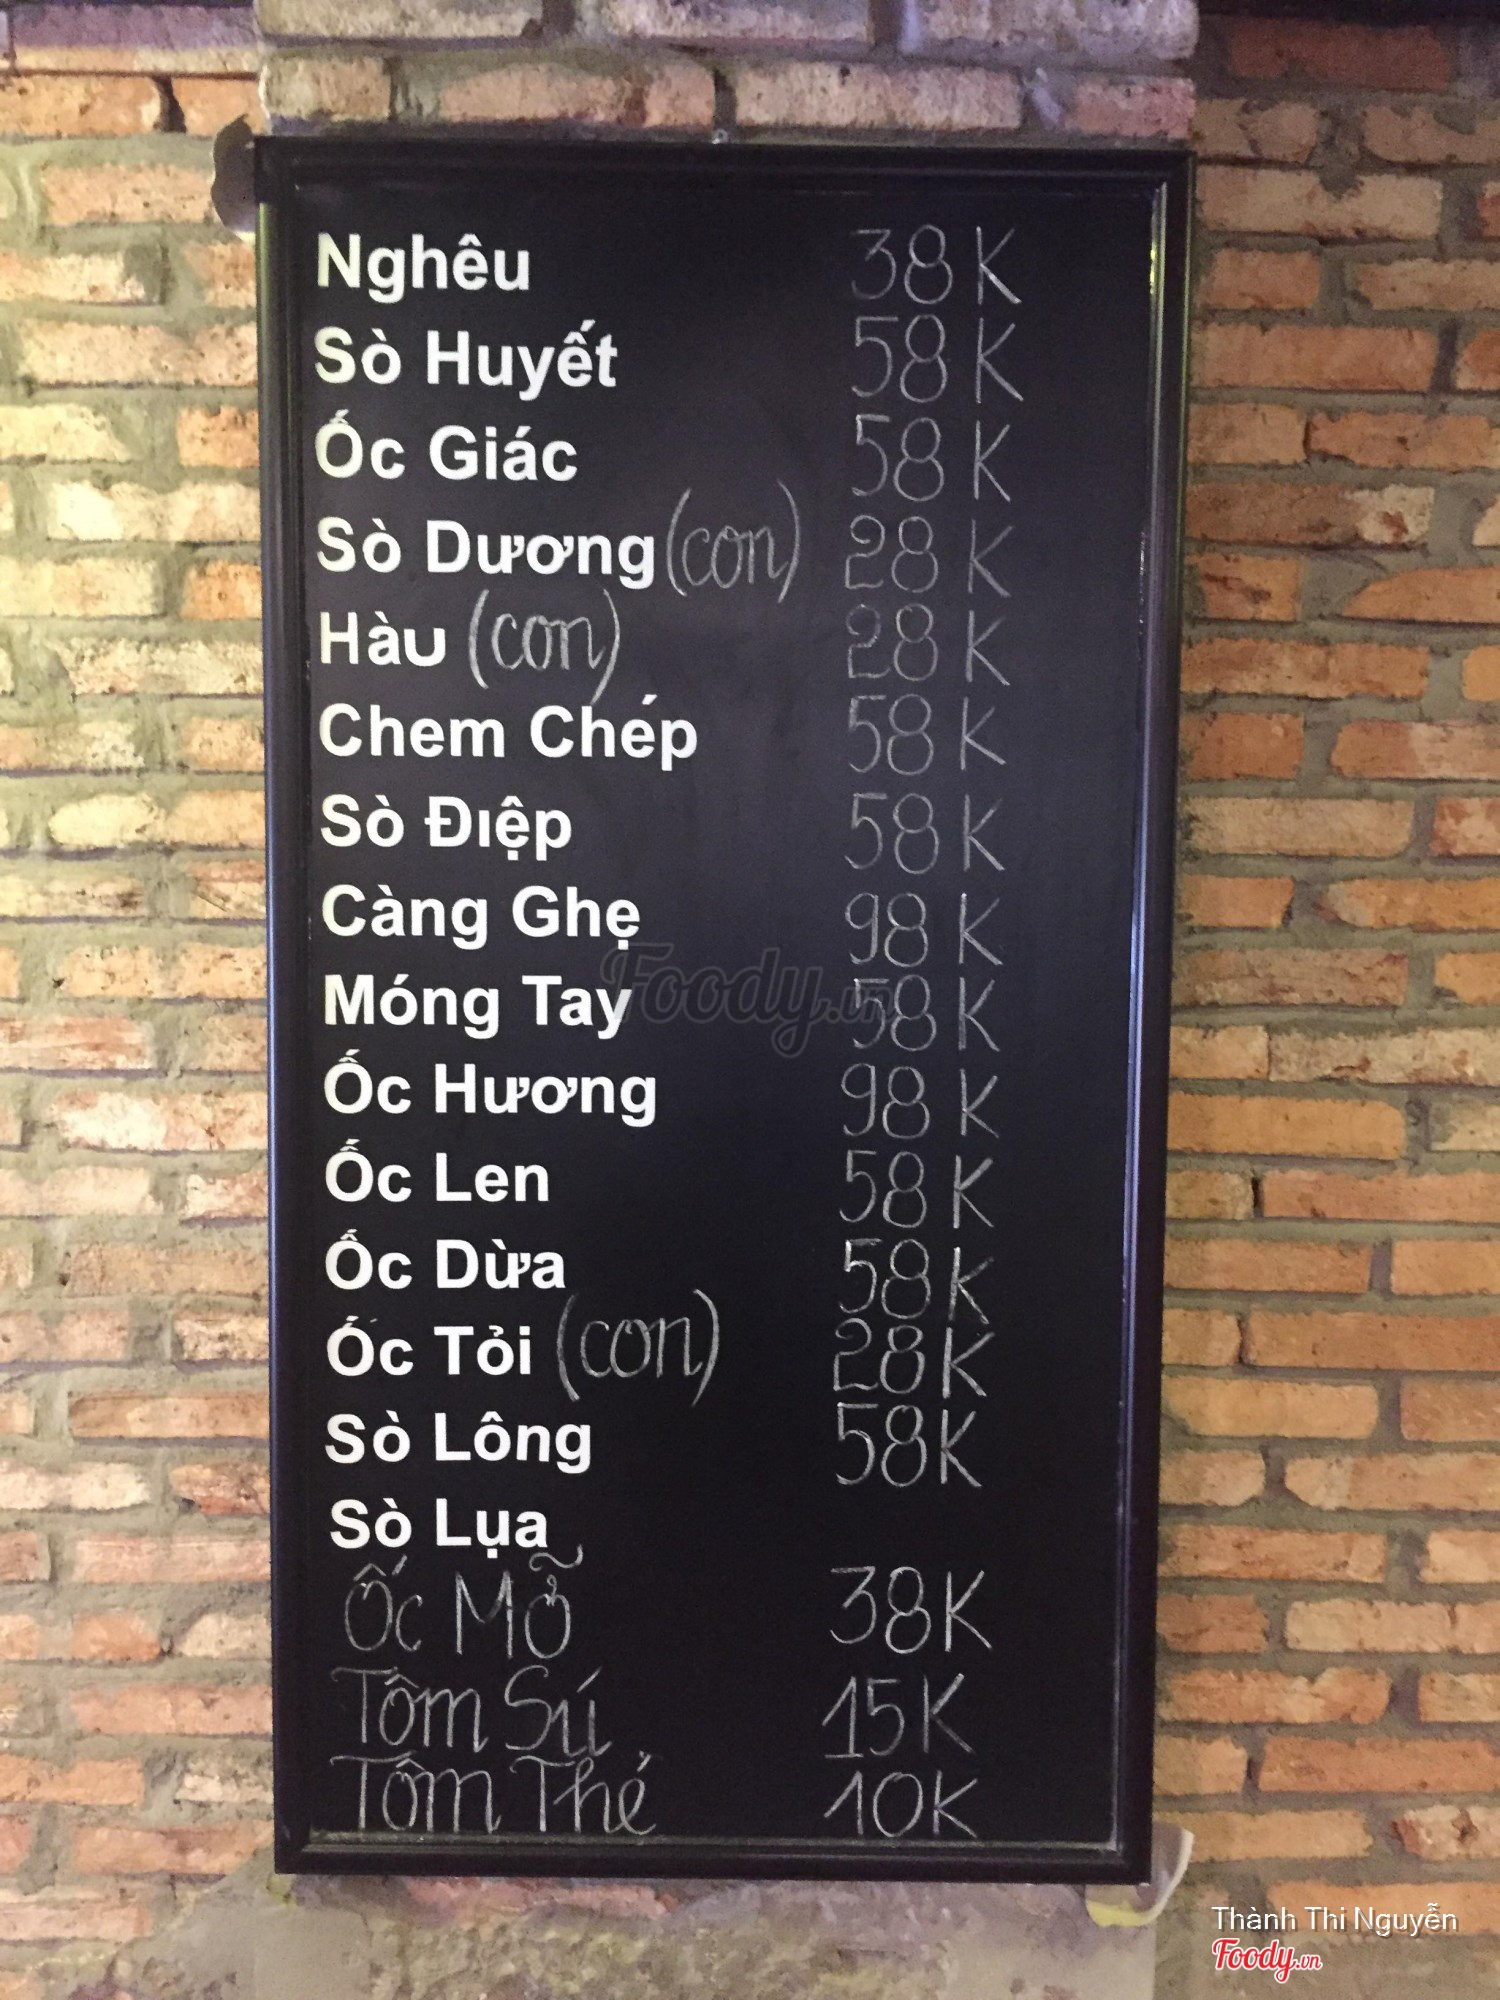 Nghêu 38K
Sò Huyết 58K
Ốc Giác 58K
Sò Dương (con) 28K
Hàu (con) 28K
Chem Chép 58K
Sò Điệp 58K
Càng Ghẹ 98K
Móng Tay 58K
Ốc Hương 98K
Ốc Len 58K
Ốc Dừa 58K
Ốc Tỏi (con) 28K
Sò Lông 58K
Sò Lụa
Ốc Mỡ 38K
Tôm Sú 15K
Tôm Thẻ 10K
Foody.vn
Thành Thi Nguyễn
Foody.vn